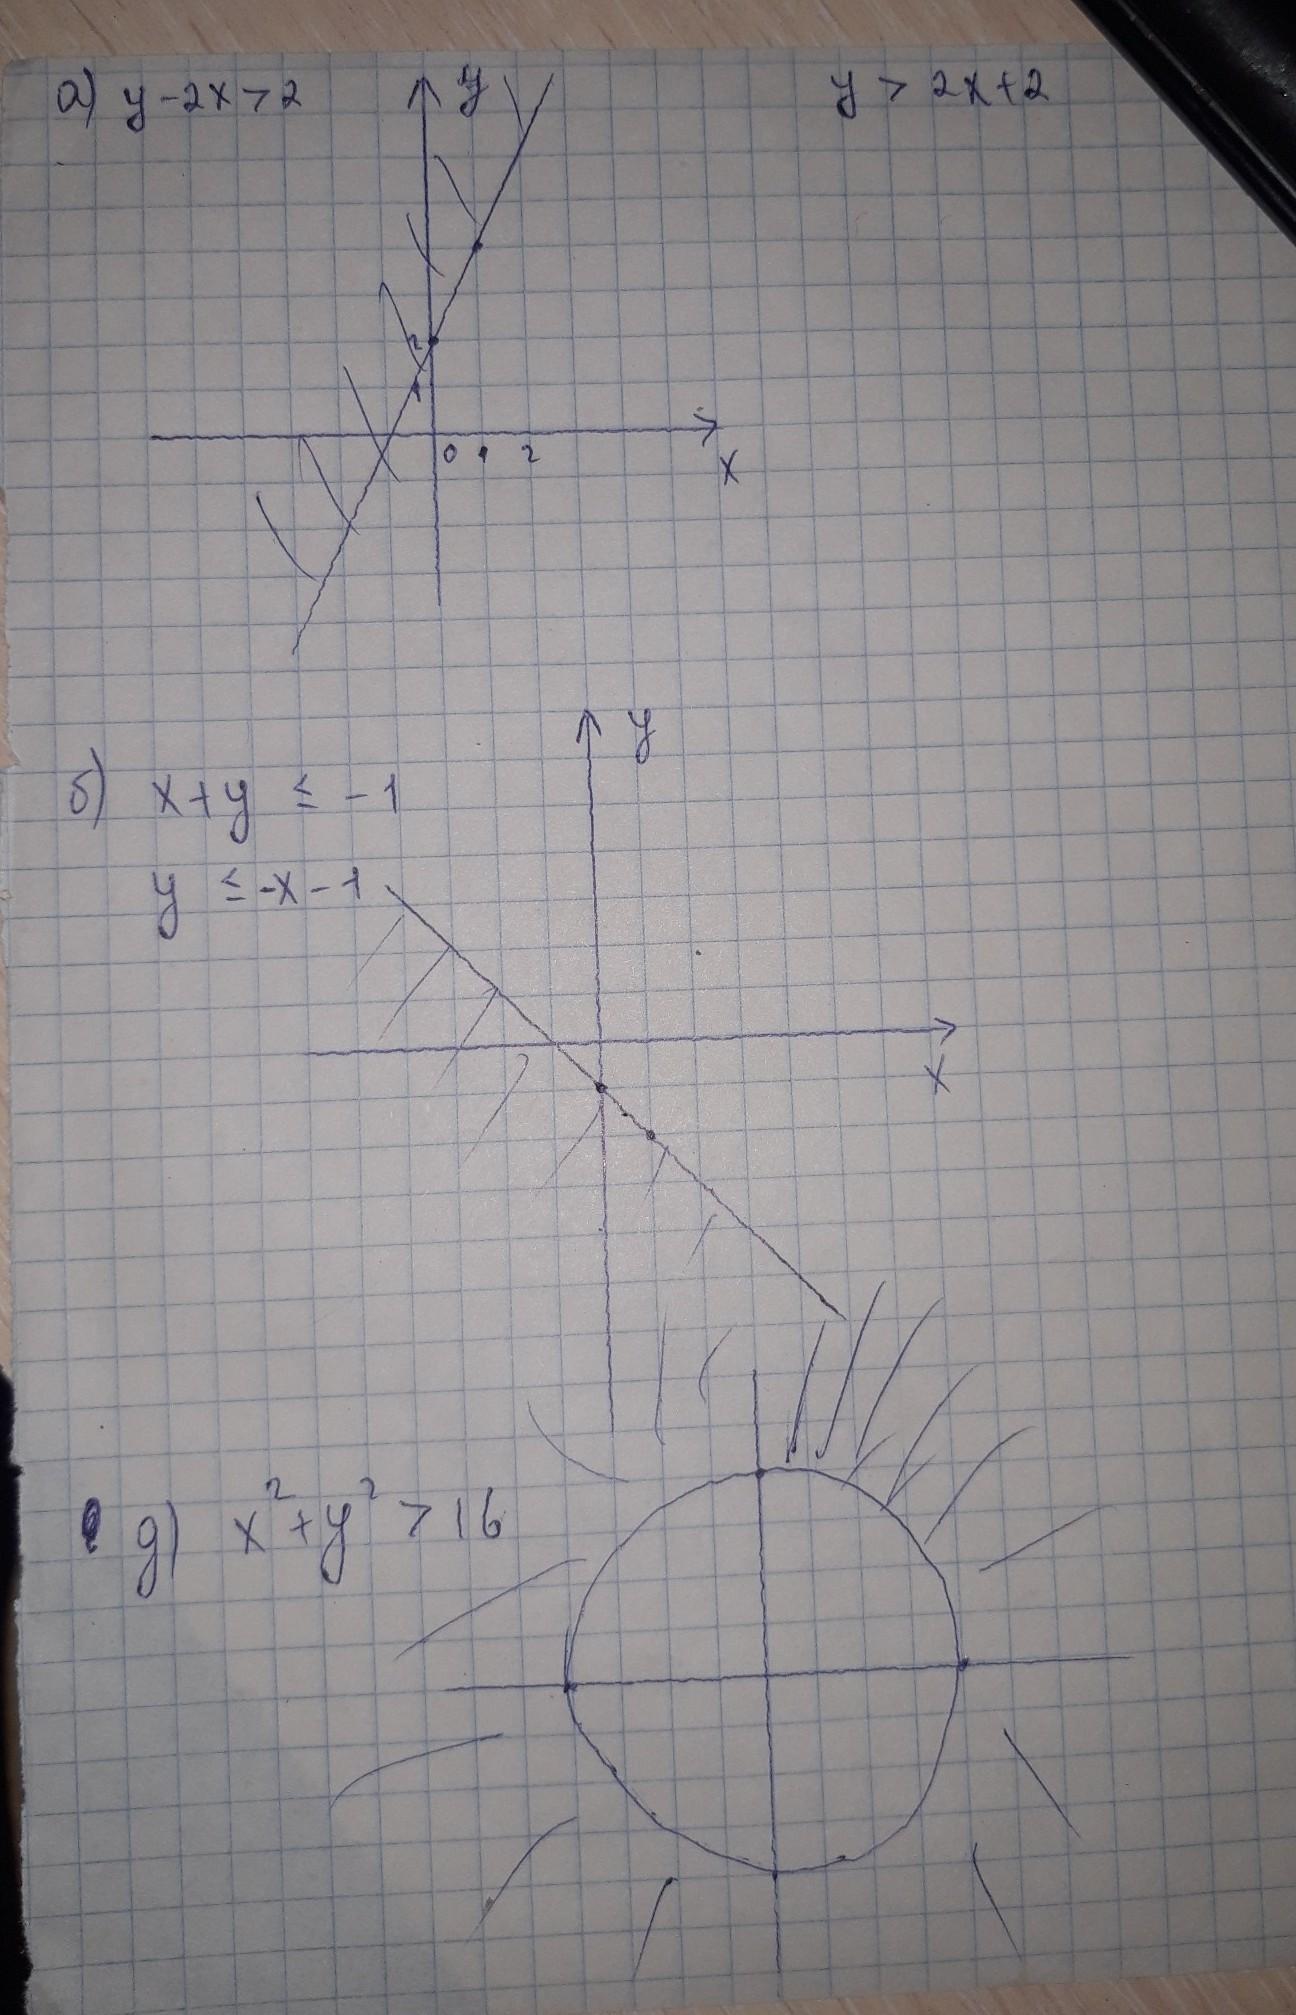 а) y-2x>2
y
y > 2x+2
2
1
0 1 2
x
y
б) x+y ≤ -1
y ≤ -x-1
x
g) x²+y² > 16